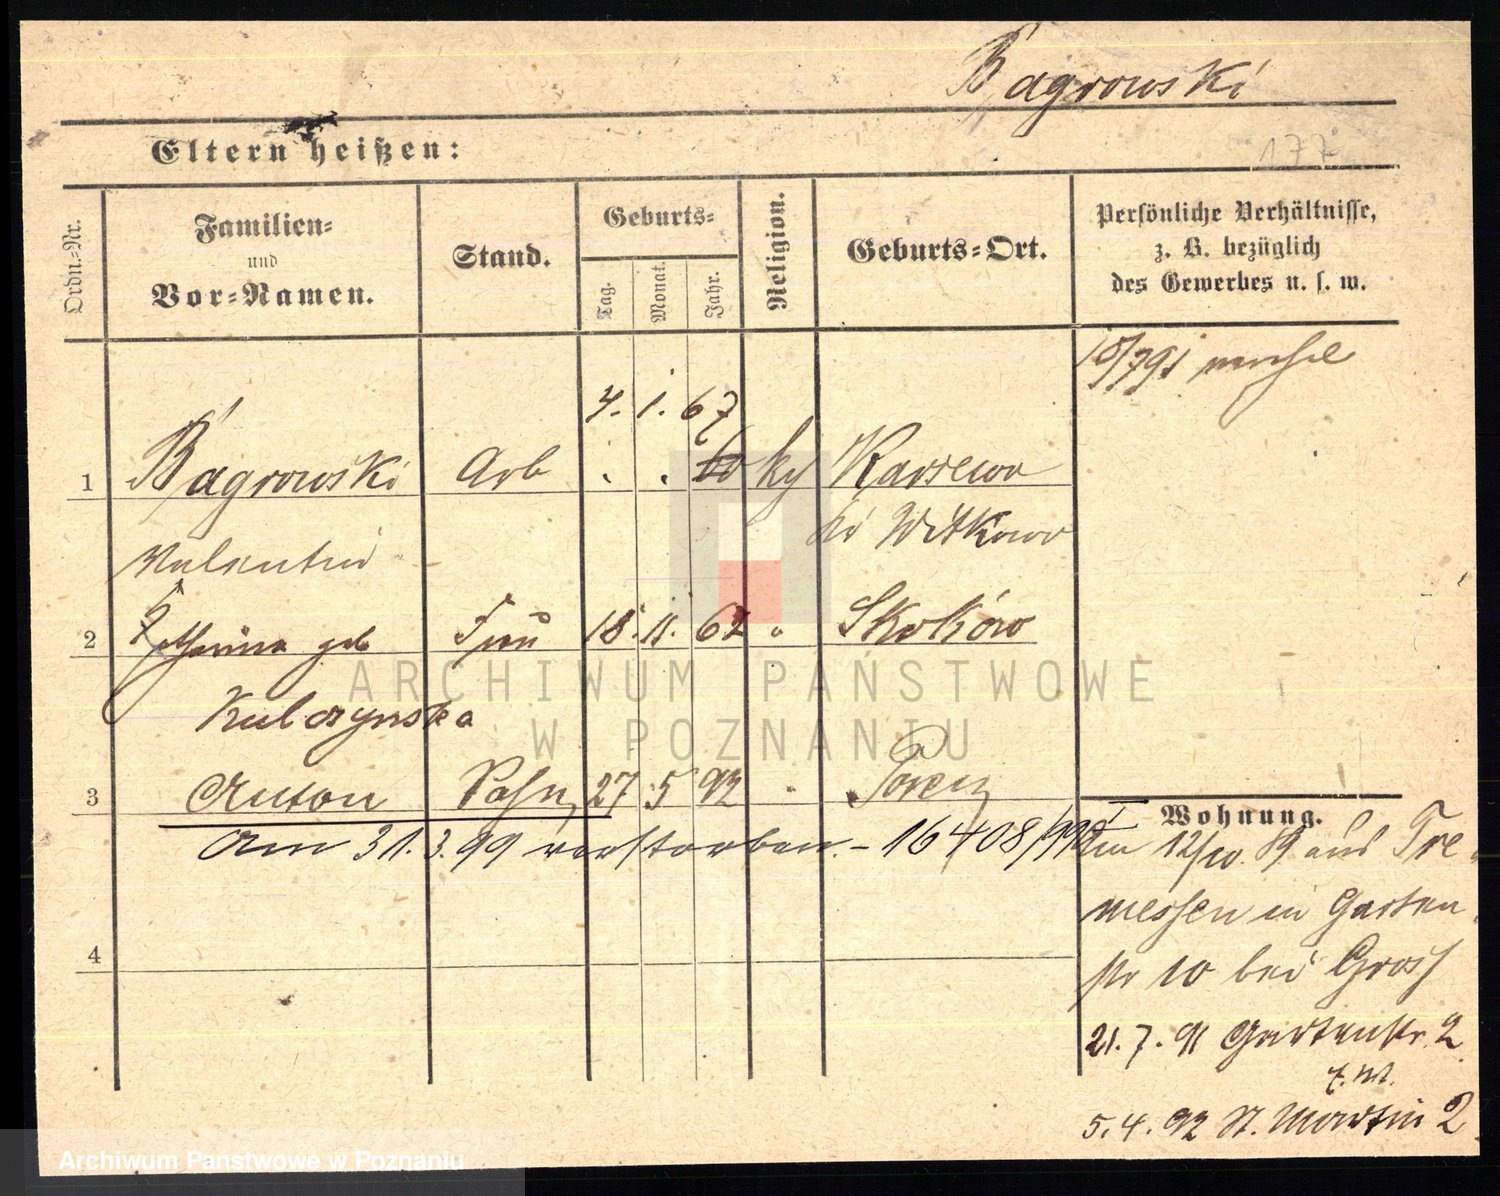 Bagrowski
177
Eltern heißen:
Ordn.-Nr.
Familien-
und
Vor-Namen.
Stand.
Geburts-
Tag.
Monat.
Jahr.
Religion.
Geburts-Ort.
Persönliche Verhältnisse,
z. B. bezüglich
des Gewerbes u. s. w.
10/791
4. 1. 67
1 Bagrowski Arb . . ky Karsewo
bei Witkowo
Valentin
2 Katharina geb Frau 18. 11. 62 " Skoków
Kulczynska
3 Anton Sohn 27 5 92 " Posen
Am 31.3.99 verstorben. - 16408/99
4
Wohnung.
Am 12/10. 89 aus Tre-
messen in Garten-
str 10 bei Grosz
21.7.91 Gartenstr. 2
5.4.92 St. Martin 2
ARCHIWUM PAŃSTWOWE
W POZNANIU
Archiwum Państwowe w Poznaniu